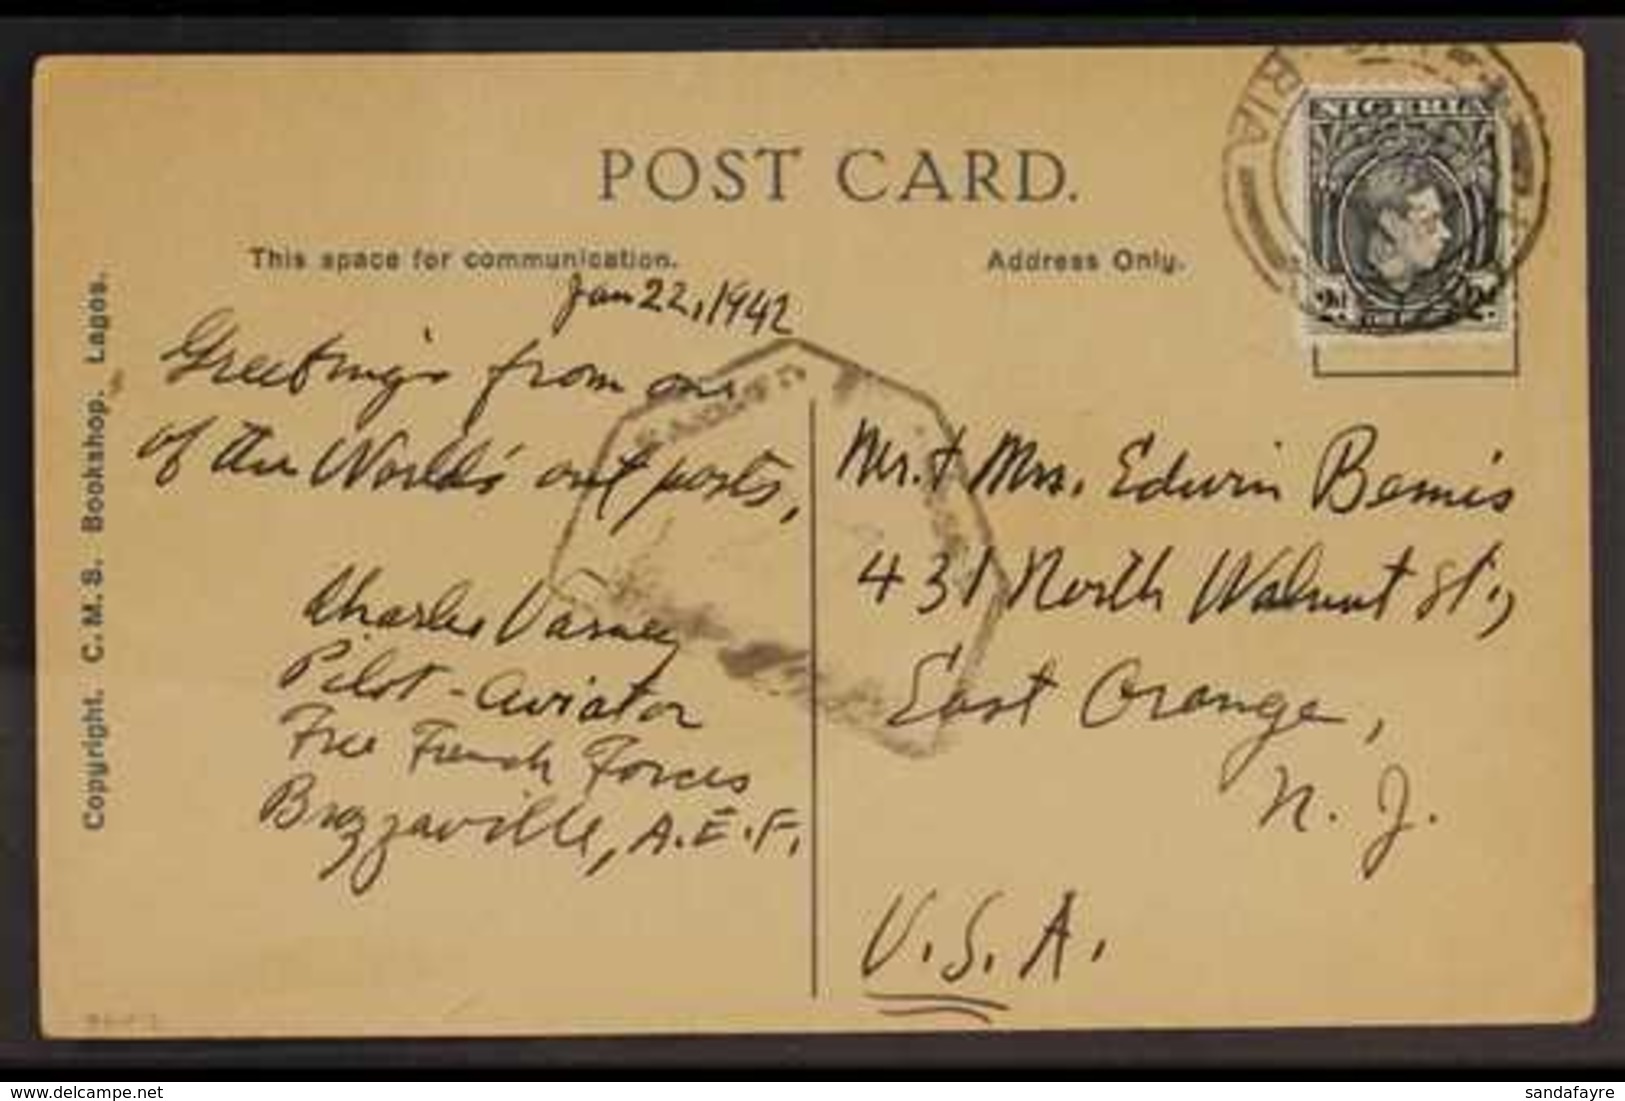 POST CARD.
This space for communication.
Address Only.
Jan 22, 1942
Greetings from one
of the World's out posts,
Charles Varney
Pilot - Aviator
Free French Forces
Brazzaville, A.E.F.
Mr. + Mrs. Edwin Bemis
431 North Walnut St.,
East Orange,
N. J.
U.S.A.
Copyright. C.M.S. Bookshop. Lagos.
NIGERIA
2d 2d.
RIA
delcampe.net
sandafayre